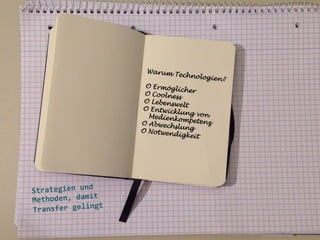 Warum Technologien?
O Ermöglicher
O Coolness
O Lebenswelt
O Entwicklung von
Medienkompetenz
O Abwechslung
O Notwendigkeit
Strategien und
Methoden, damit
Transfer gelingt